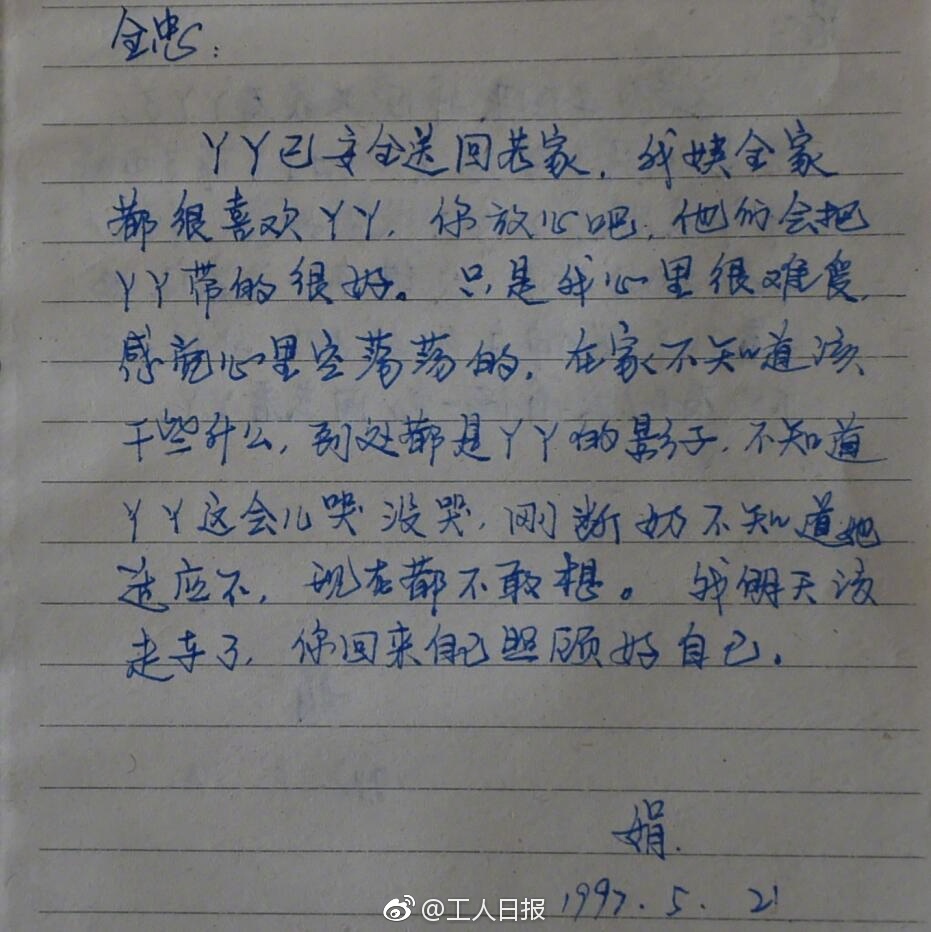 全忠:
丫丫已安全送回老家,我姨全家
都很喜欢丫丫,你放心吧,他们会把
丫丫带的很好。只是我心里很难受,
感觉心里空荡荡的,在家不知道该
干些什么,到处都是丫丫的影子,不知道
丫丫这会儿哭没哭,刚断奶不知道她
适应不,现在都不敢想。我明天该
走车了,你回来自己照顾好自己。
娟.
1997.5.21
@工人日报